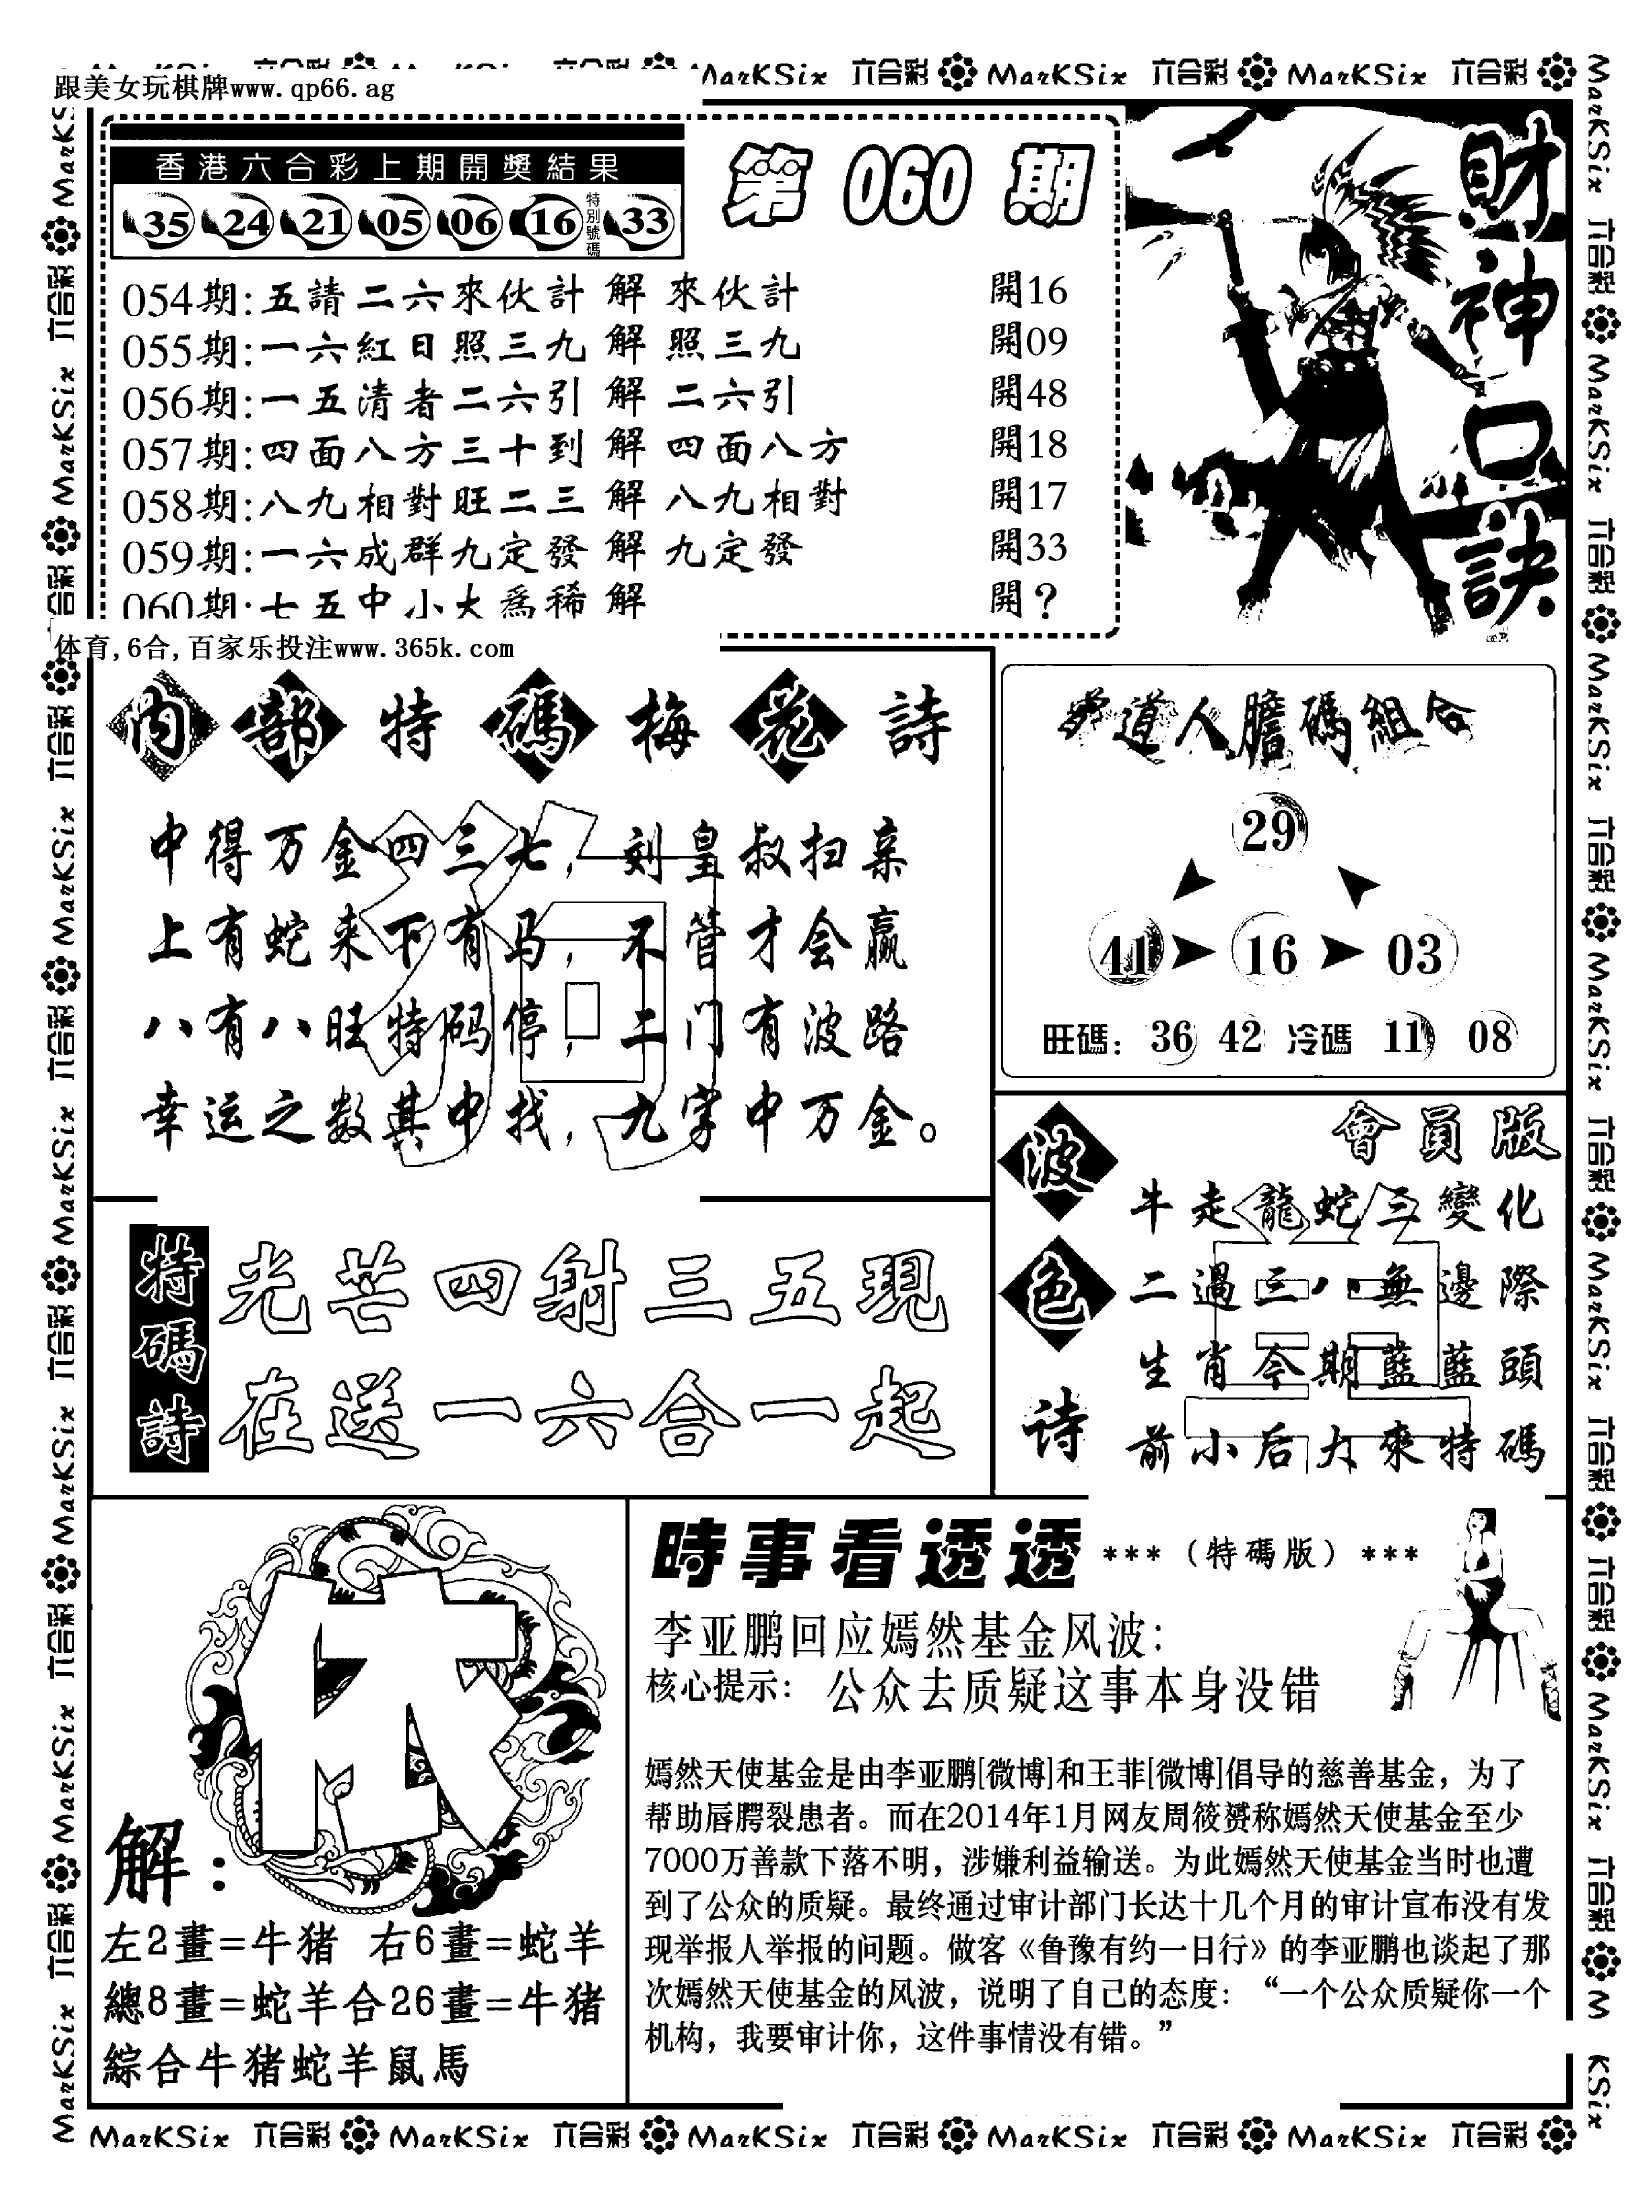 MarKSix 六合彩 MarKSix 六合彩 MarKSix 六合彩
跟美女玩棋牌www.qp66.ag
香港六合彩上期開獎結果
35 24 21 05 06 16 特別號碼 33
第 060 期
財神口訣
054期:五請二六來伙計 解 來伙計 開16
055期:一六紅日照三九 解 照三九 開09
056期:一五清者二六引 解 二六引 開48
057期:四面八方三十到 解 四面八方 開18
058期:八九相對旺二三 解 八九相對 開17
059期:一六成群九定發 解 九定發 開33
060期:七五中小大爲稀 解 開?
体育,6合,百家乐投注www.365k.com
内部特碼梅花詩
狗
中得万金四三七,刘皇叔扫亲
上有蛇来下有马,不管才会赢
八有八旺特码停,二门有波路
幸运之数其中找,九字中万金。
道人膽碼組合
29
41 16 03
旺碼: 36 42 冷碼 11 08
特碼詩
光芒四射三五現
在送一六合一起
波色诗
會員版
牛走龍蛇三變化
二過三八無邊際
生肖今期藍藍頭
前小后大來特碼
解:
左2畫=牛猪 右6畫=蛇羊
總8畫=蛇羊合26畫=牛猪
綜合牛猪蛇羊鼠馬
時事看透透 ***(特碼版)***
李亚鹏回应嫣然基金风波:
核心提示: 公众去质疑这事本身没错
嫣然天使基金是由李亚鹏[微博]和王菲[微博]倡导的慈善基金，为了
帮助唇腭裂患者。而在2014年1月网友周筱赟称嫣然天使基金至少
7000万善款下落不明，涉嫌利益输送。为此嫣然天使基金当时也遭
到了公众的质疑。最终通过审计部门长达十几个月的审计宣布没有发
现举报人举报的问题。做客《鲁豫有约一日行》的李亚鹏也谈起了那
次嫣然天使基金的风波，说明了自己的态度：“一个公众质疑你一个
机构，我要审计你，这件事情没有错。”
MarKSix 六合彩 MarKSix 六合彩 MarKSix 六合彩 MarKSix 六合彩 MarKSix 六合彩